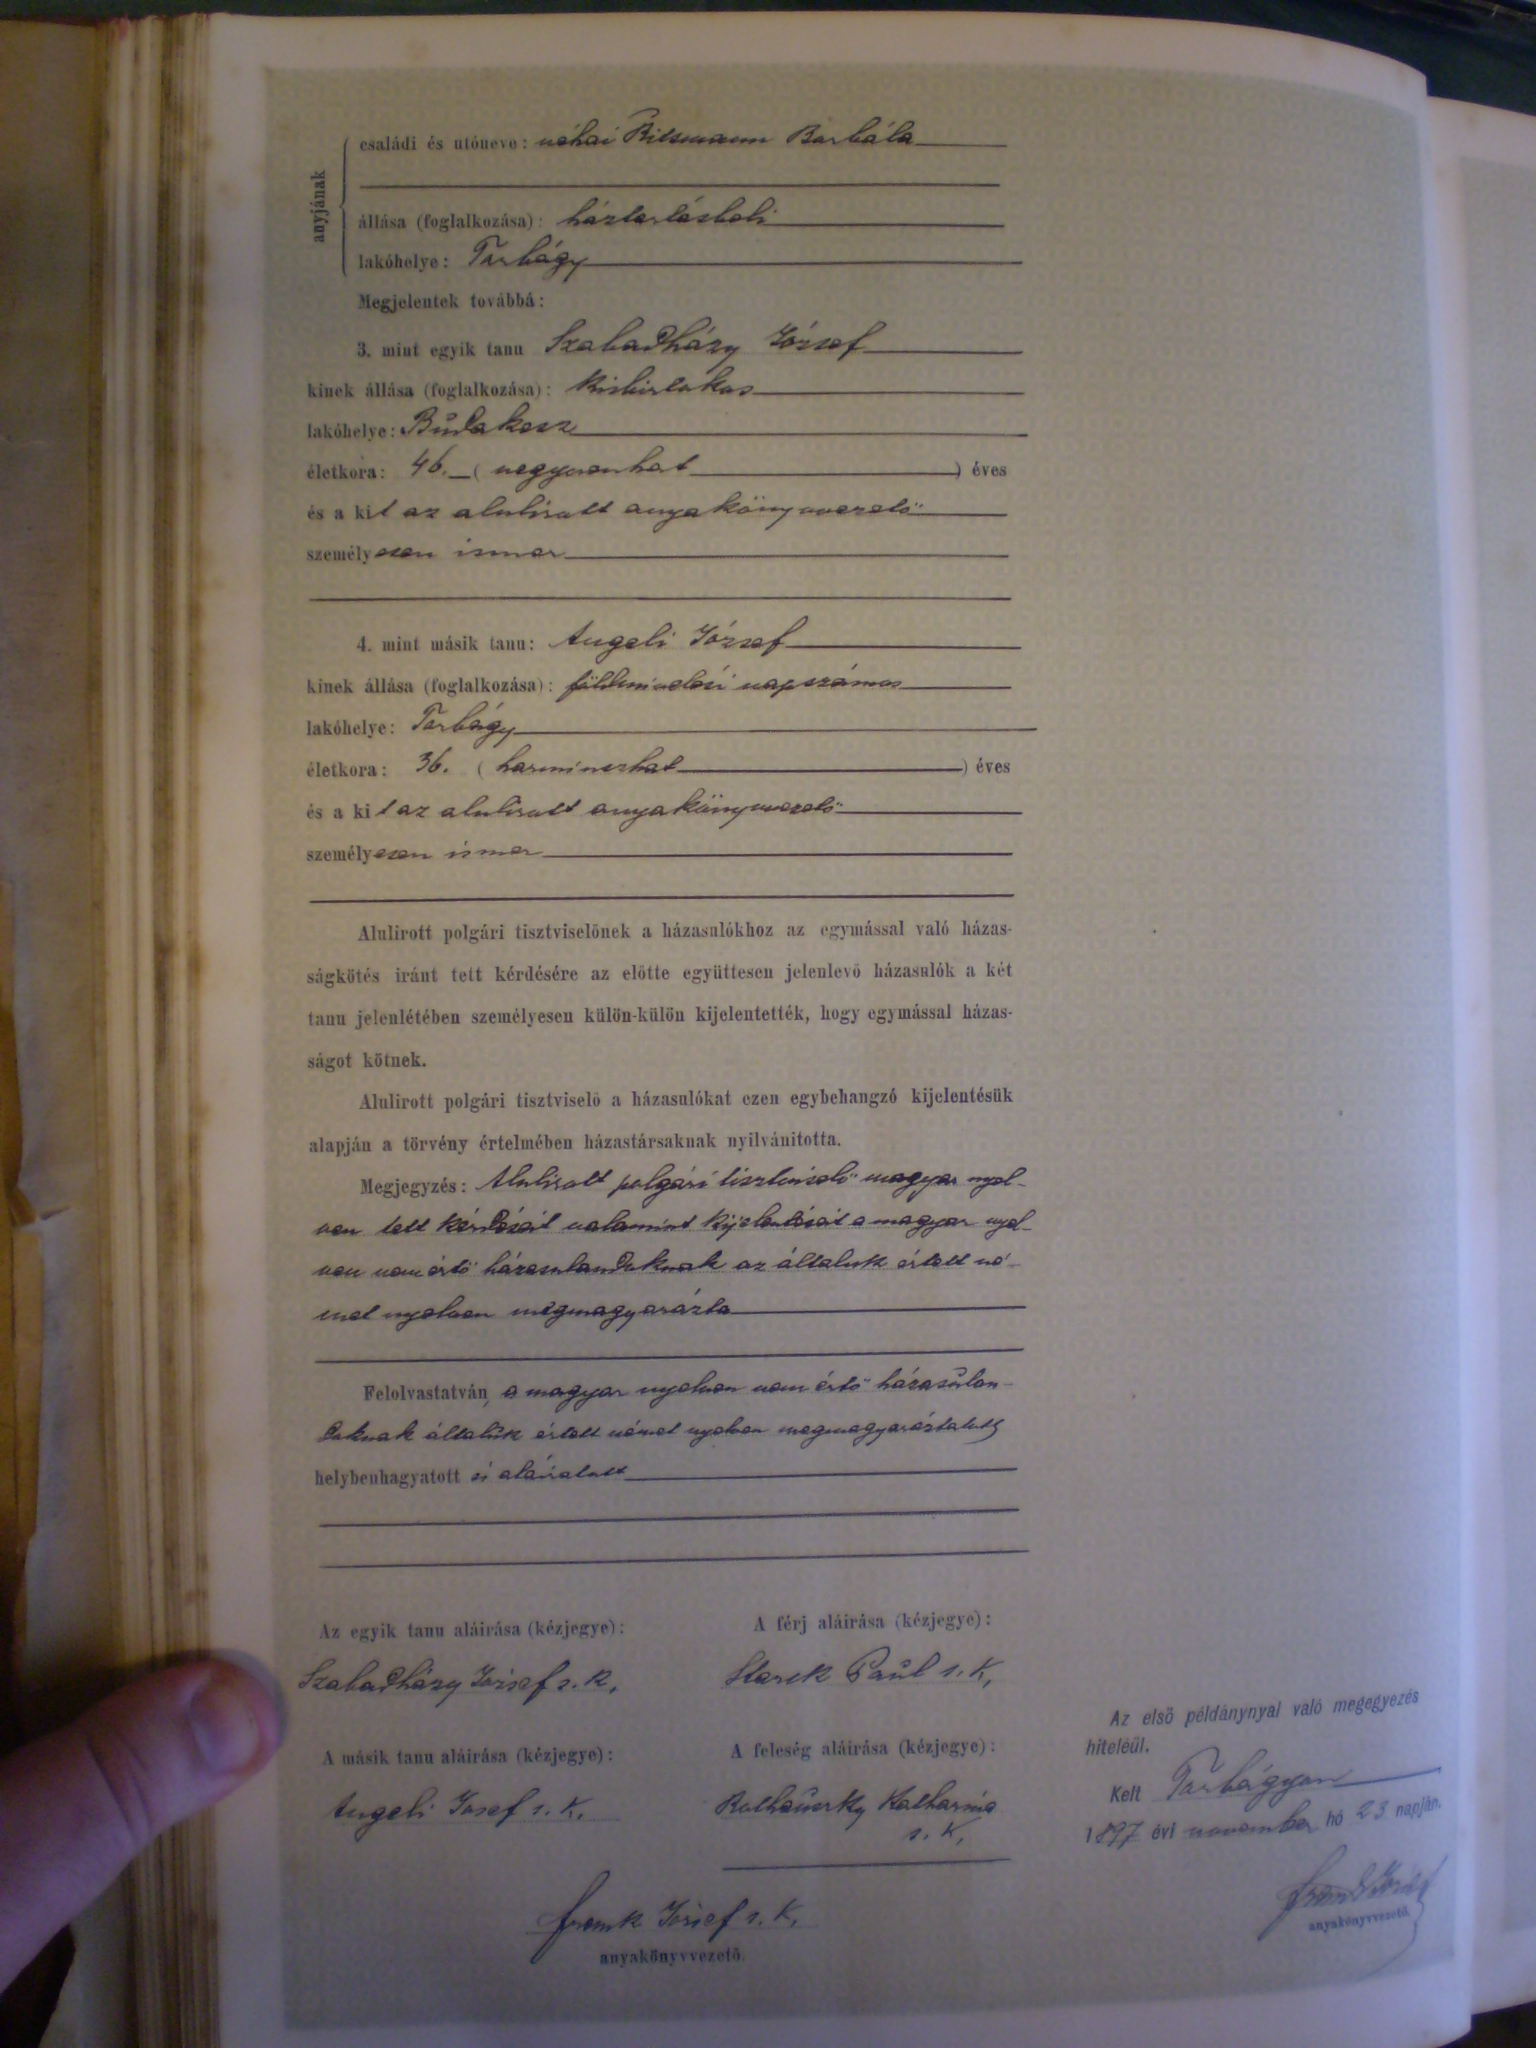 anyjának
családi és utóneve: néhai Barbála
állása (foglalkozása): háztartásbeli
lakóhelye: Torbágy
Megjelentek továbbá:
3. mint egyik tanu Szabadházy József
kinek állása (foglalkozása): kisbirtokos
lakóhelye: Budakesz
életkora: 46. (negyvenhat) éves
és a kit az alulirott anyakönyvvezető
személyesen ismer
4. mint másik tanu: Angeli József
kinek állása (foglalkozása): földmivelési napszámos
lakóhelye: Torbágy
életkora: 36. (harminczhat) éves
és a kit az alulirott anyakönyvvezető
személyesen ismer
Alulirott polgári tisztviselőnek a házasulókhoz az egymással való házas-
ságkötés iránt tett kérdésére az előtte együttesen jelenlevő házasulók a két
tanu jelenlétében személyesen külön-külön kijelentették, hogy egymással házas-
ságot kötnek.
Alulirott polgári tisztviselő a házasulókat ezen egybehangzó kijelentésük
alapján a törvény értelmében házastársaknak nyilvánitotta.
Megjegyzés: Alulirott polgári tisztviselő magyar nyel-
ven tett kérdését valamint kijelentését a magyar nyel-
ven nem értő házasulandoknak az általuk értett né-
met nyelven megmagyarázta
Felolvastatván, a magyar nyelven nem értő házasulan-
doknak általuk értett német nyelven megmagyaráztatott
helybenhagyatott és aláiratott
Az egyik tanu aláirása (kézjegye):
A férj aláirása (kézjegye):
Szabadházy József s. k.
Starck Paul s. k.
A másik tanu aláirása (kézjegye):
A feleség aláirása (kézjegye):
Angeli Josef s. k.
Katharina
s. k.
Frank József s. k.
anyakönyvvezető.
Az első példánynyal való megegyezés
hiteléül.
Kelt Torbágyon
1897 évi november hó 23 napján.
Frank József
anyakönyvvezető.